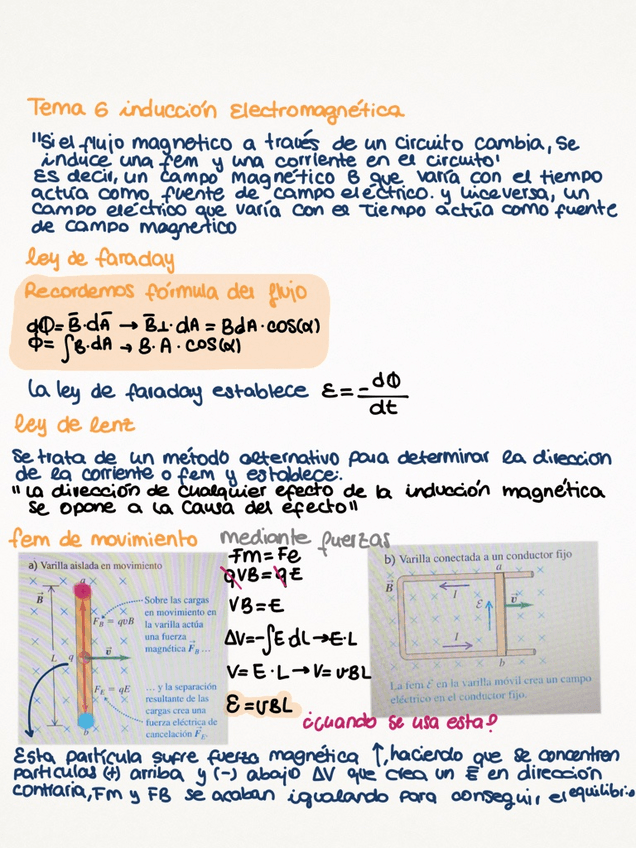 Tema 6 inducción Electromagnética
"Si el flujo magnetico a través de un circuito cambia, se
induce una fem y una corriente en el circuito'
Es decir, un campo magnético B que varía con el tiempo
actúa como fuente de campo eléctrico. y viceversa, un
campo eléctrico que varía con el tiempo actúa como fuente
de campo magnetico
ley de faraday
Recordemos fórmula del flujo
dΦ = B̄·dĀ → B̄⊥·dA = BdA·cos(α)
Φ = ∫B·dA → B·A·cos(α)
la ley de faraday establece ε = -dΦ/dt
ley de lenz
Se trata de un método alternativo para determinar la dirección
de la corriente o fem y establece:
"La dirección de cualquier efecto de la inducción magnética
se opone a la causa del efecto"
fem de movimiento mediante fuerzas
a) Varilla aislada en movimiento
B⃗
a
Sobre las cargas
en movimiento en
la varilla actúa
una fuerza
magnética F⃗B ...
FB = qvB
L
q
v⃗
FE = qE
... y la separación
resultante de las
cargas crea una
fuerza eléctrica de
cancelación F⃗E.
b
Fm = Fe
qVB = qE
VB = E
ΔV = -∫E dL → E·L
V = E·L → V = vBL
ε = vBL
¿cuando se usa esta?
b) Varilla conectada a un conductor fijo
B⃗
a
I
ε
v⃗
I
b
La fem ε en la varilla móvil crea un campo
eléctrico en el conductor fijo.
Esta partícula sufre fuerza magnética ↑, haciendo que se concentren
partículas (+) arriba y (-) abajo ΔV que crea un E̅ en dirección
contraria, Fm y FB se acaban igualando para conseguir el equilibrio